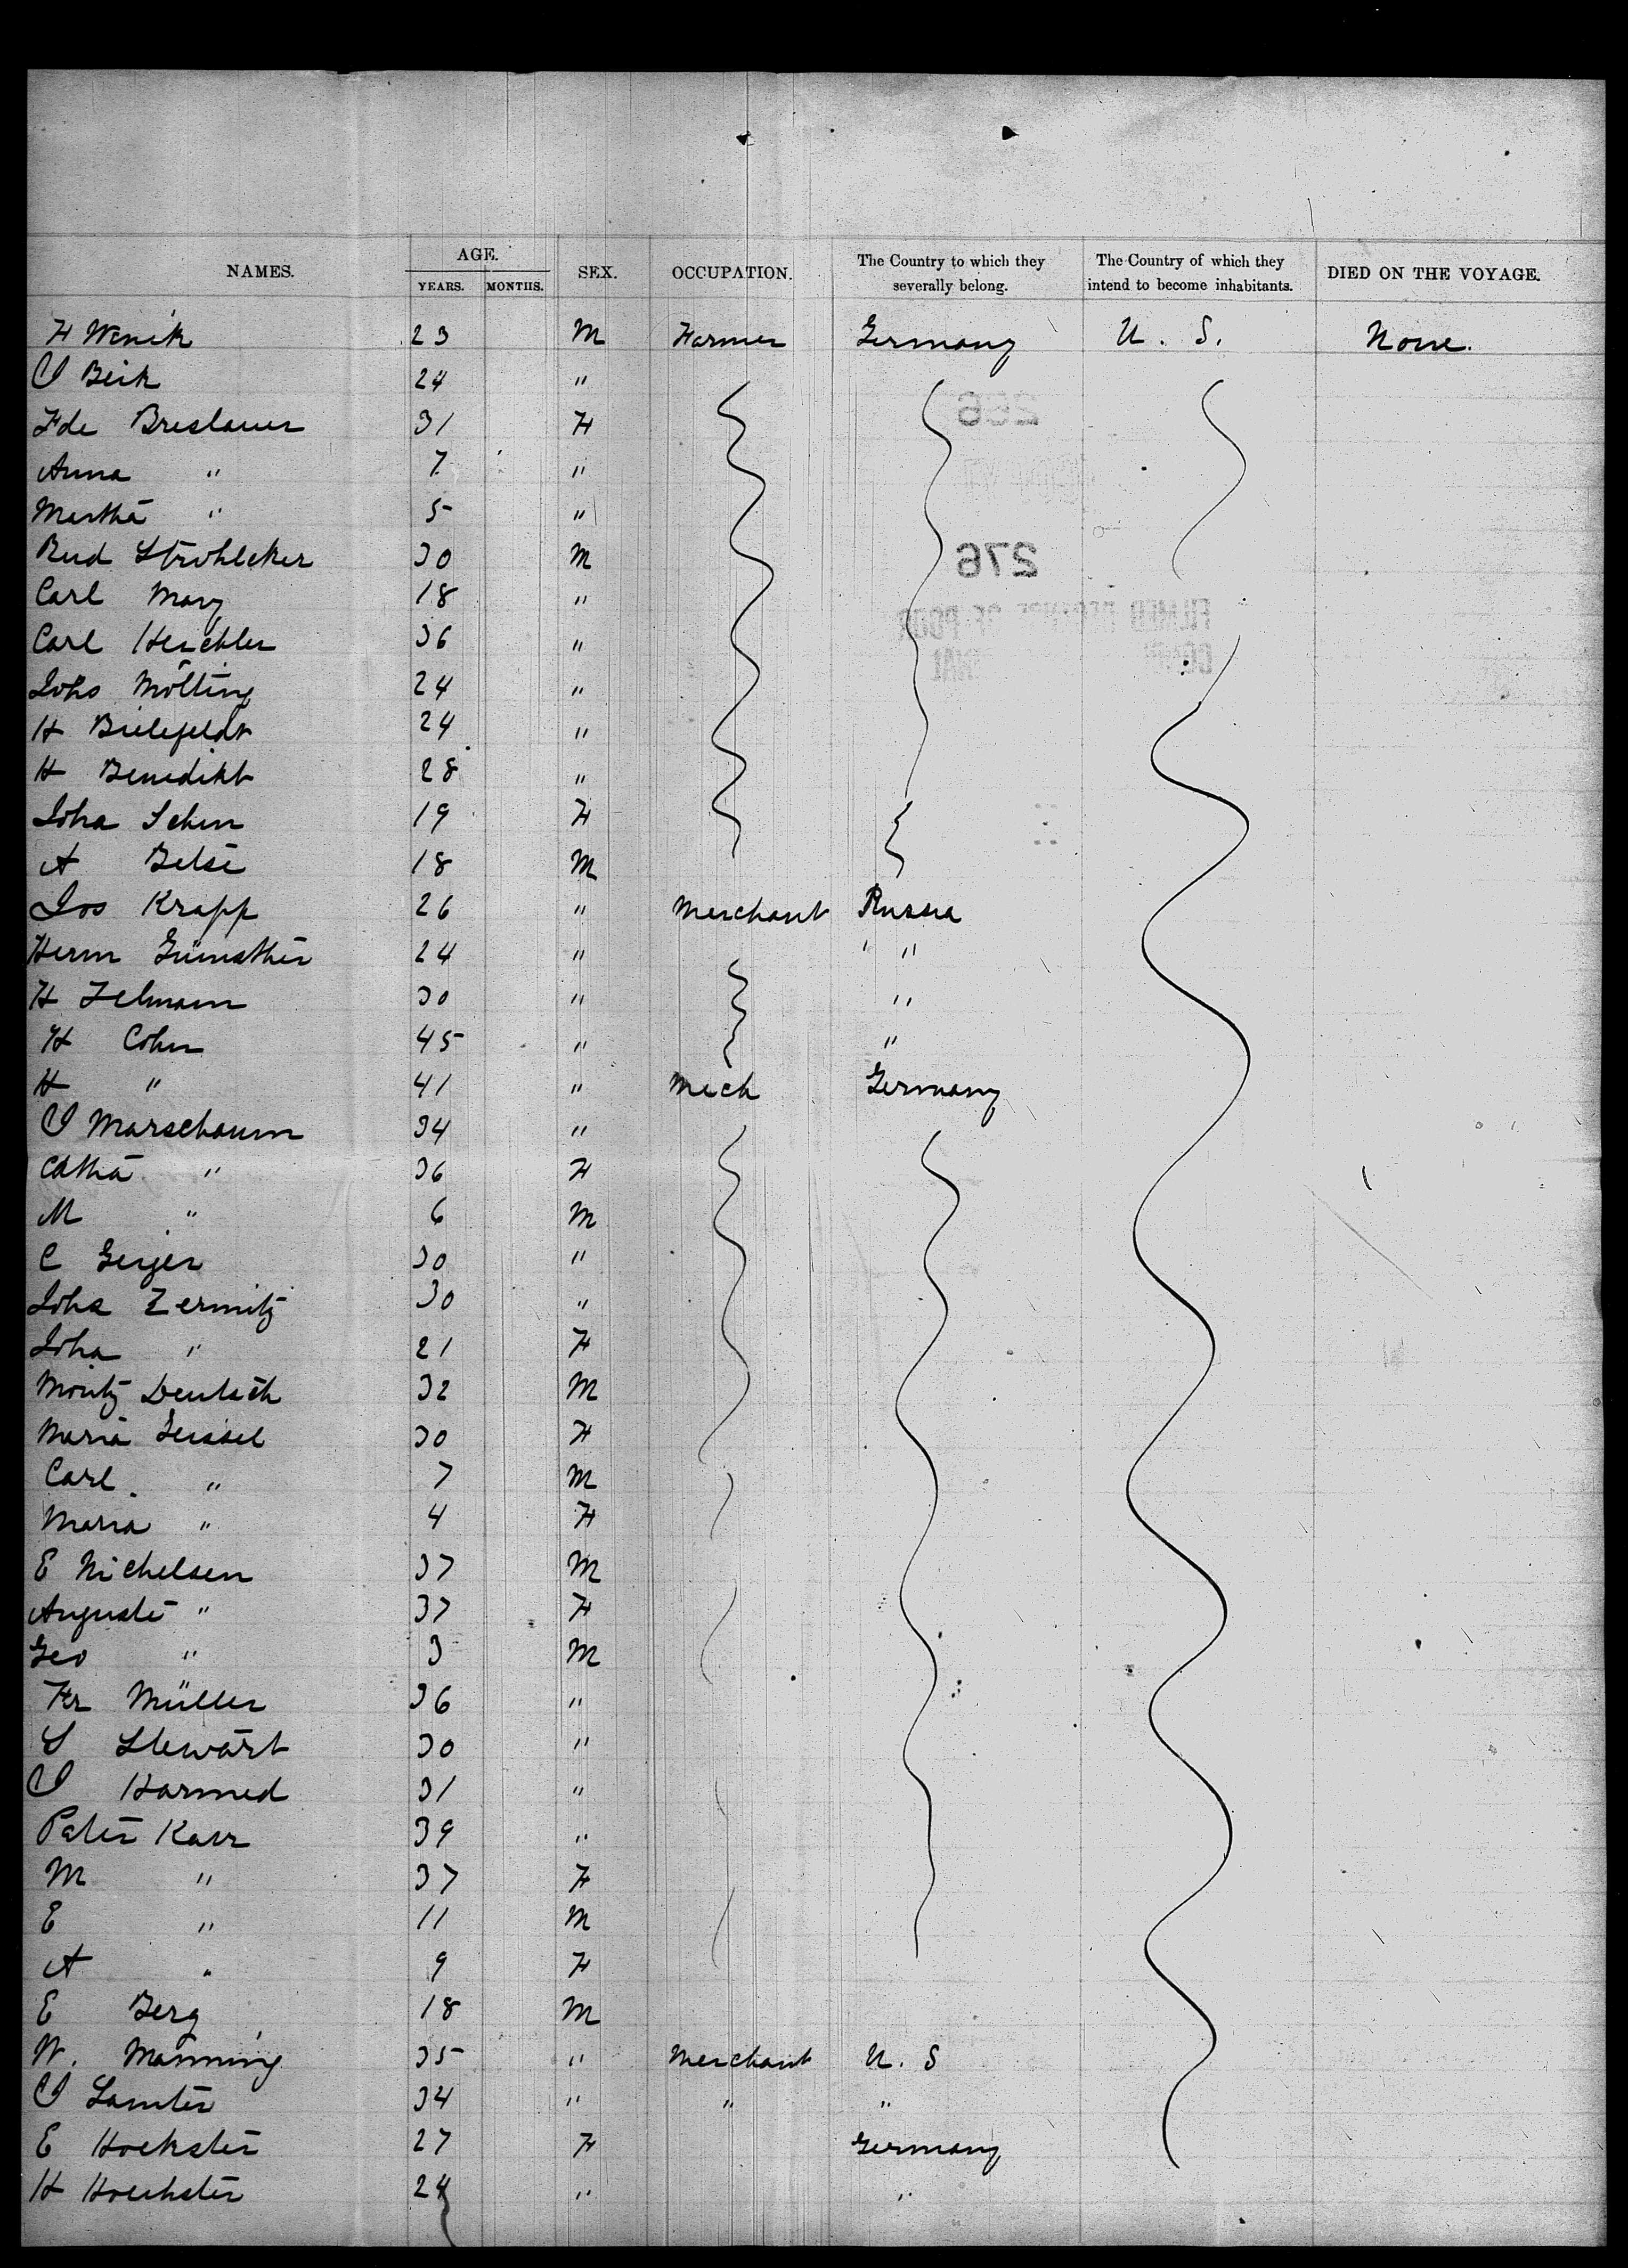 NAMES. AGE. YEARS. MONTHS. SEX. OCCUPATION. The Country to which they severally belong. The Country of which they intend to become inhabitants. DIED ON THE VOYAGE.
H Wenik 23 M Farmer Germany U. S. None.
Beik 24 "
Fde Breslauer 31 F
Anna " 7 "
Martha " 5 "
Rud Strohlcker 30 M
Carl Mary 18 "
Carl Herchler 36 "
Johs Mölting 24 "
H Bielefeldt 24 "
H Benedikt 28 "
Joha Schen 19 F
A Belse 18 M
Jos Krapp 26 " Merchant Russia
Herm 24 " " "
H Zelmann 30 " "
H Cohn 45 " "
H " 41 " Mech Germany
Marschaum 34 "
Catha " 36 F
M " 6 M
C Geiger 30 "
Johs Zermitz 30 "
Joha " 21 F
Moritz Deutsch 32 M
Maria Geissel 30 F
Carl " 7 M
Maria " 4 F
E Nichelsen 37 M
Auguste " 37 F
Geo " 3 M
Fr Müller 36 "
S Stewart 30 "
Harmed 31 "
Peter Karr 39 "
M " 37 F
E " 11 M
A " 9 F
E Berg 18 M
W. Manning 35 " Merchant U. S
Samter 34 " " "
E Hoekster 27 F Germany
H Hoechster 24 " "
266
276
FILMED BECAUSE OF POOR